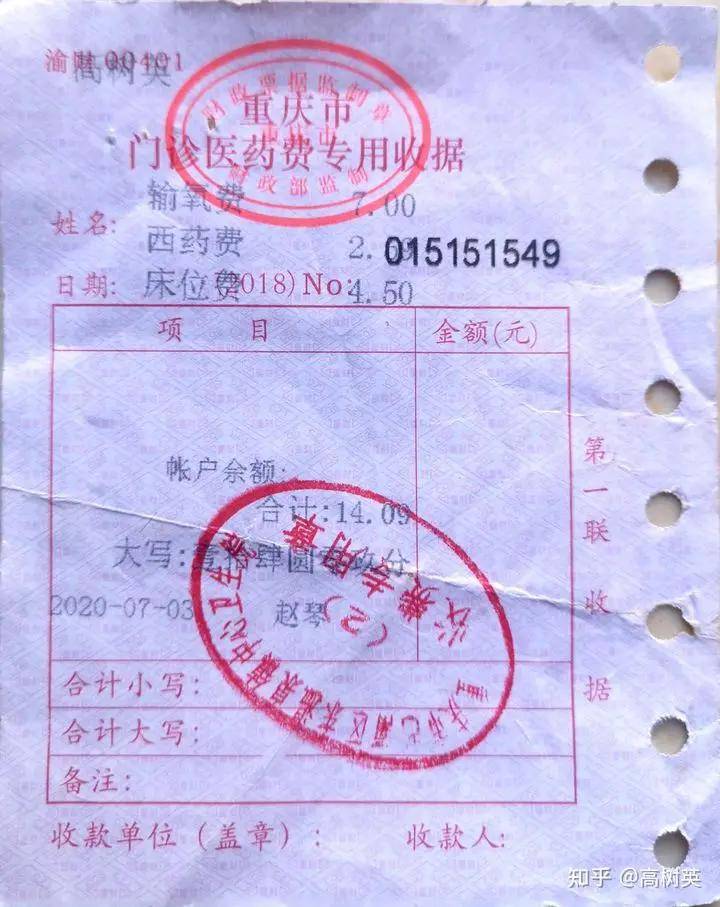 渝财00401
高树英
财政票据监制章
重庆市
重庆市
门诊医药费专用收据
财政部监制
输氧费 7.00
姓名:
西药费 2.59
015151549
日期: 床位费 4.50
(2018) No:
项 目 金额(元)
帐户余额:
合计:14.09
大写:壹拾肆圆零玖分
2020-07-03 赵琴
收费专用章
(2)
重庆市巴南区
中心卫生院
合计小写:
合计大写:
备注:
第一联 收据
收款单位(盖章): 收款人:
知乎 @高树英